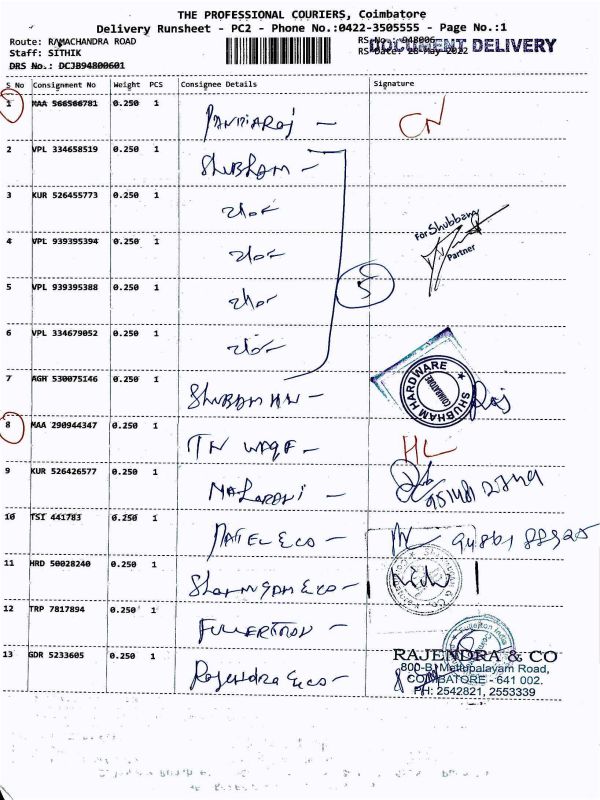 THE PROFESSIONAL COURIERS, Coimbatore
Delivery Runsheet - PC2 - Phone No.:0422-3505555 - Page No.:1
Route: RAMACHANDRA ROAD
Staff: SITHIK
DRS No.: DCJB94800601
RS No.: 948006
RS Date: 28-May-2022
DOCUMENT DELIVERY
S No Consignment No Weight PCS Consignee Details Signature
1 MAA 566566781 0.250 1 CN
2 VPL 334658519 0.250 1 Shubham -
3 KUR 526455773 0.250 1
4 VPL 939395394 0.250 1
For Shubham
Partner
5 VPL 939395388 0.250 1 5
6 VPL 334679052 0.250 1
7 AGH 530075146 0.250 1 Shubham HW -
SHUBHAM HARDWARE
COIMBATORE
8 MAA 290944347 0.250 1 TN WAQF - HL
9 KUR 526426577 0.250 1
10 TSI 441783 0.250 1 Patel & Co -
11 HRD 50028240 0.250 1
12 TRP 7817894 0.250 1 Fullerton -
Fullerton India
13 GDR 5233605 0.250 1 Rajendra & Co -
RAJENDRA & CO
800-B, Mettupalayam Road,
COIMBATORE - 641 002.
PH: 2542821, 2553339